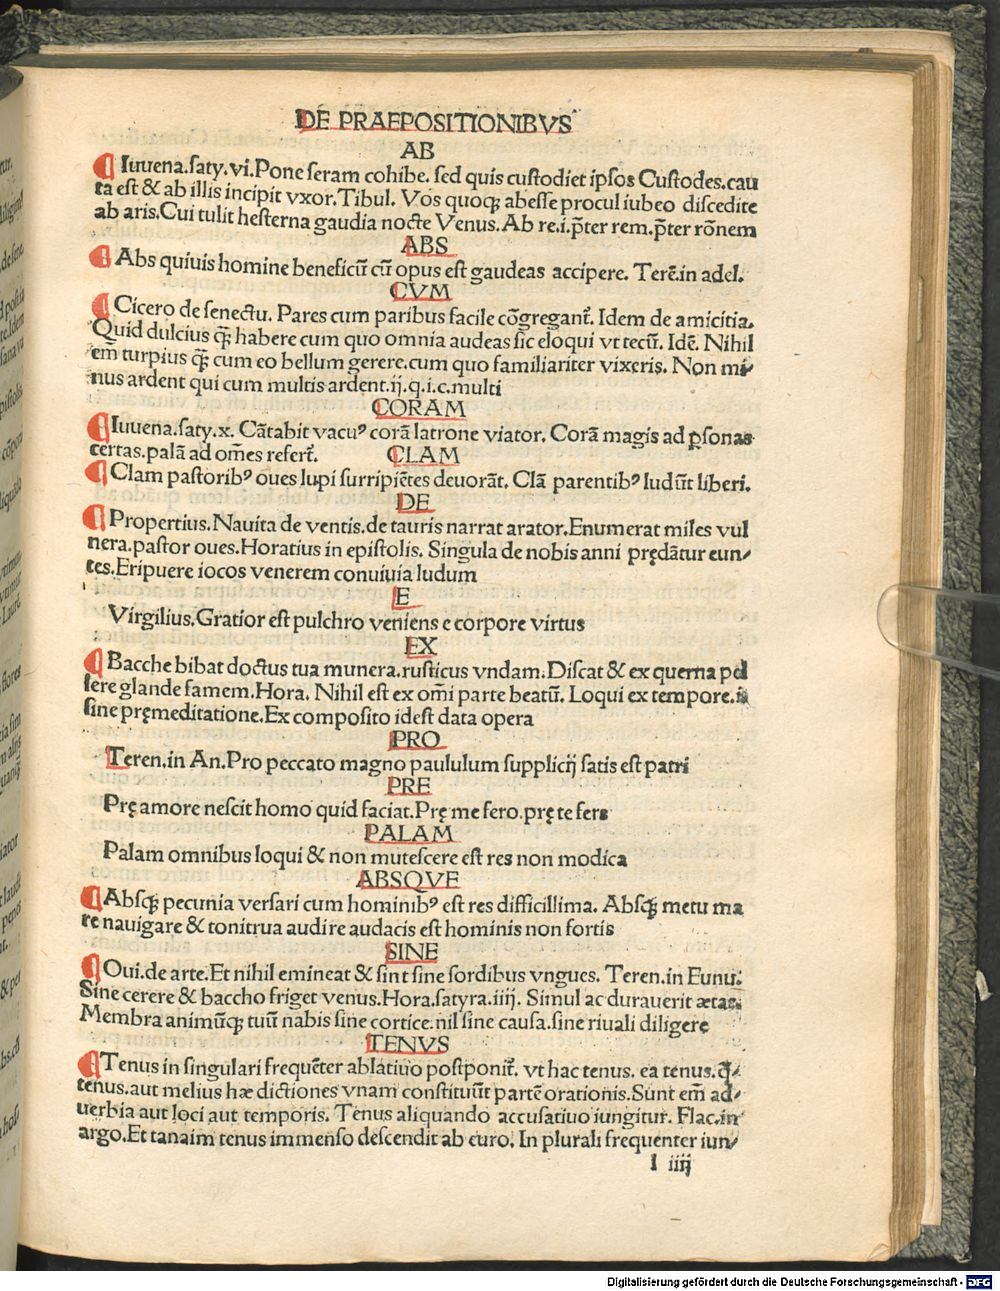 DE PRAEPOSITIONIBVS
AB
Iuuena.saty.vi.Pone seram cohibe. sed quis custodiet ipsos Custodes.cau
ta est & ab illis incipit vxor. Tibul. Vos quoqꝫ abesse procul iubeo discedite
ab aris.Cui tulit hesterna gaudia nocte Venus. Ab re.i.p̄ter rem.p̄ter rōnem
ABS
Abs quiuis homine beneficiū cū opus est gaudeas accipere. Terē.in adel.
CVM
Cicero de senectu. Pares cum paribus facile cōgregant̄. Idem de amicitia.
Quid dulcius qꝫ̄ habere cum quo omnia audeas sic eloqui vt tecū. Idē. Nihil
em̄ turpius qꝫ̄ cum eo bellum gerere.cum quo familiariter vixeris. Non mi⸗
nus ardent qui cum multis ardent.ij.q.i.c.multi
CORAM
Iuuena.saty.x. Cātabit vacuꝰ corā latrone viator. Corā magis ad ꝑsonas
certas.palā ad om̄es refert̄. CLAM
Clam pastoribꝰ oues lupi surripiētes deuorāt. Clā parentibꝰ ludūt liberi.
DE
Propertius. Nauita de ventis.de tauris narrat arator.Enumerat miles vul
nera.pastor oues.Horatius in epistolis. Singula de nobis anni prędātur eun⸗
tes.Eripuere iocos venerem conuiuia ludum
E
Virgilius.Gratior est pulchro veniens e corpore virtus
EX
Bacche bibat doctus tua munera.rusticus vndam.Discat & ex querna pel
lere glande famem.Hora. Nihil est ex om̄i parte beatū. Loqui ex tempore.i.
sine pręmeditatione.Ex composito idest data opera
PRO
Teren.in An.Pro peccato magno paululum supplicij satis est patri
PRE
Prę amore nescit homo quid faciat.Prę me fero.prę te fers
PALAM
Palam omnibus loqui & non mutescere est res non modica
ABSQVE
Absqꝫ pecunia versari cum hominibꝰ est res difficillima. Absqꝫ metu ma
re nauigare & tonitrua audire audacis est hominis non fortis
SINE
Oui.de arte.Et nihil emineat & sint sine sordibus vngues. Teren.in Eunu.
Sine cerere & baccho friget venus.Hora.satyra.iiij. Simul ac durauerit ætas
Membra animūqꝫ tuū nabis sine cortice.nil sine causa.sine riuali diligere
TENVS
Tenus in singulari frequēter ablatiuo postponit̄. vt hac tenus. ea tenus.q̄⸗
tenus.aut melius hæ dictiones vnam constituūt partē orationis.Sunt em̄ ad⸗
uerbia aut loci aut temporis. Tenus aliquando accusatiuo iungitur. Flac.in
argo.Et tanaim tenus immenso descendit ab euro. In plurali frequenter iun⸗
l iiij
Digitalisierung gefördert durch die Deutsche Forschungsgemeinschaft - DFG